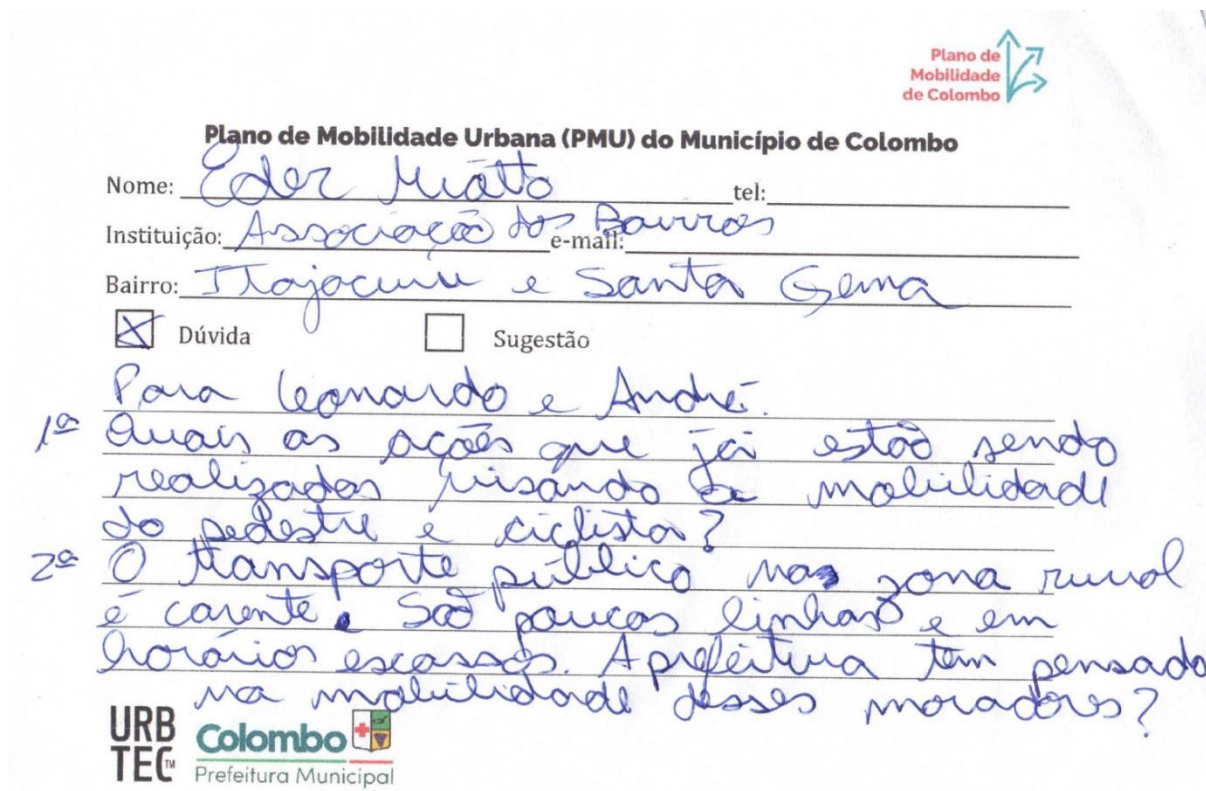 Plano de
Mobilidade
de Colombo
Plano de Mobilidade Urbana (PMU) do Município de Colombo
Nome: Eder Miatto tel:
Instituição: Associação dos Bairros e-mail:
Bairro: Itajacuru e Santa Gema
Dúvida Sugestão
Para Leonardo e André.
1ª Quais as ações que já estão sendo
realizadas visando a mobilidade
do pedestre e ciclista?
2ª O transporte público na zona rural
é carente. São poucas linhas e em
horários escassos. A prefeitura tem pensado
na mobilidade desses moradores?
URB
TEC™
Colombo
Prefeitura Municipal